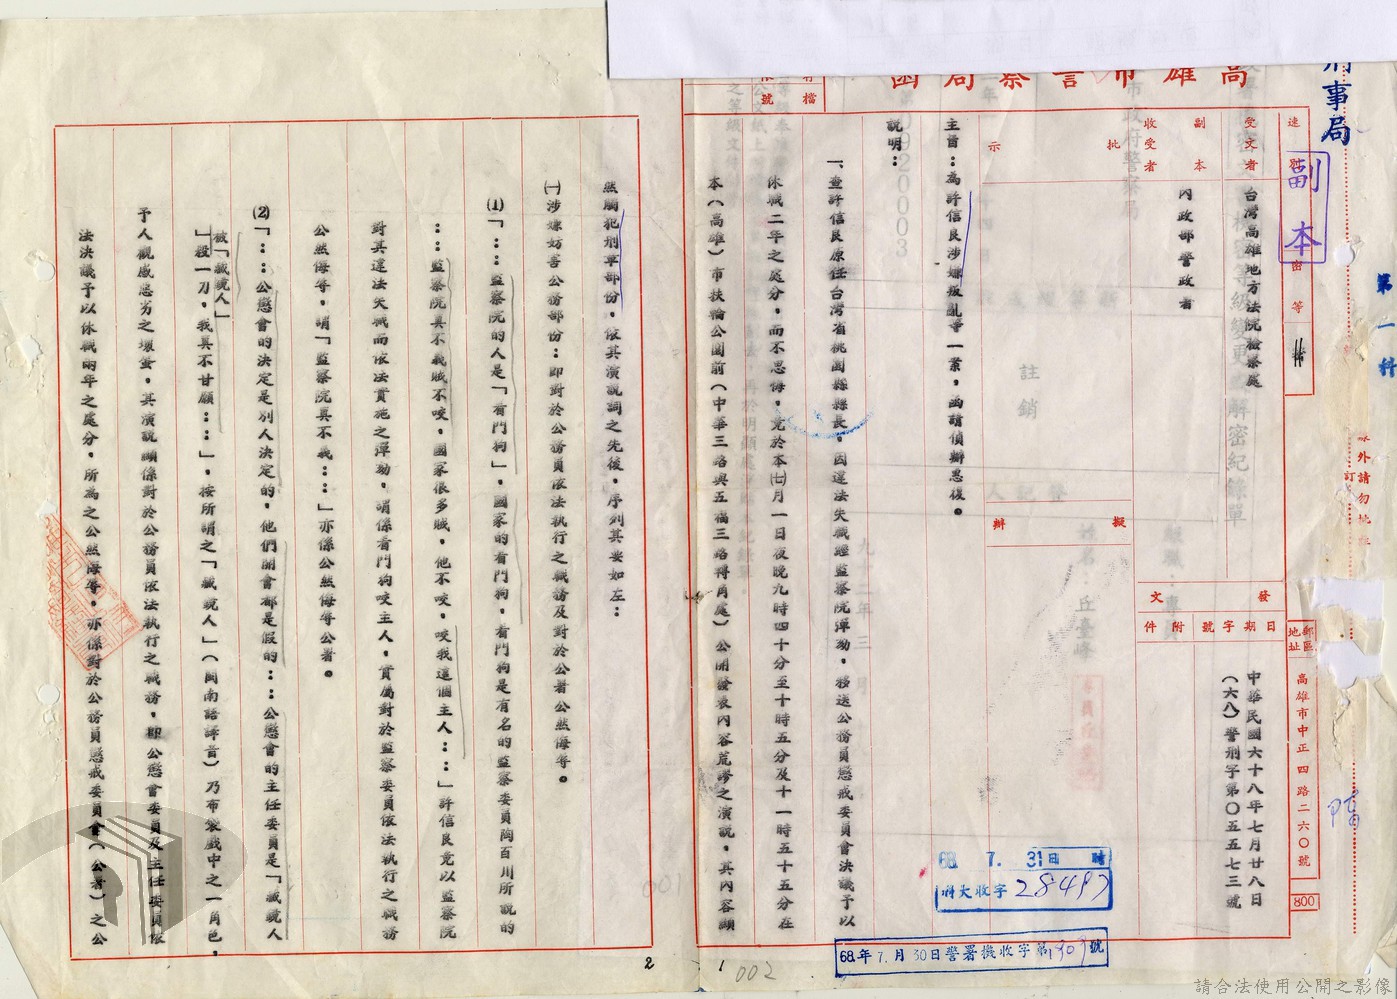 刑事局
第一科
高雄市警察局函
檔號
速別
密等
受文者 台灣高雄地方法院檢察處
副本收受者 內政部警政署
副本
批示
擬辦
發文
日期 字號 附件
中華民國六十八年七月廿八日
(六八)警刑字第〇五五七三號
郵區 地址
高雄市中正四路二六〇號
800
主旨：為許信良涉嫌叛亂等一案，函請偵辦惠復。
說明：
一、查許信良原任台灣省桃園縣縣長，因違法失職經監察院彈劾，移送公務員懲戒委員會決議予以
休職二年之處分，而不思悔，竟於本㈦月一日夜晚九時四十分至十時五分及十一時五十五分在
本(高雄)市扶輪公園前(中華三路與五福三路轉角處)公開發表內容荒謬之演說，其內容顯
68. 7. 31日 時
收字 28497
68.年7.月30日警署機收字第1909號
1
002
然觸犯刑章部份，依其演說詞之先後，序列其要如左：
㈠涉嫌妨害公務部份：即對於公務員依法執行之職務及對於公署公然侮辱。
⑴「：：監察院的人是「看門狗」，國家的看門狗，看門狗是有名的監察委員陶百川所說的
：：監察院真不義賊不咬，國家很多賊，他不咬，咬我這個主人：：」許信良竟以監察院
對其違法失職而依法實施之彈劾，謂係看門狗咬主人，實屬對於監察委員依法執行之職務
公然侮辱，謂「監察院真不義：：」亦係公然侮辱公署。
⑵「：：公懲會的決定是別人決定的，他們開會都是假的：：公懲會的主任委員是「藏鏡人
」被「藏鏡人」殺一刀，我真不甘願：：」，按所謂之「藏鏡人」(閩南語譯音)乃布袋戲中之一角色，
予人觀感惡劣之壞蛋，其演說顯係對於公務員依法執行之職務，即公懲會委員及主任委員依
法決議予以休職兩年之處分，所為之公然侮辱，亦係對於公務員懲戒委員會(公署)之公
2
請合法使用公開之影像